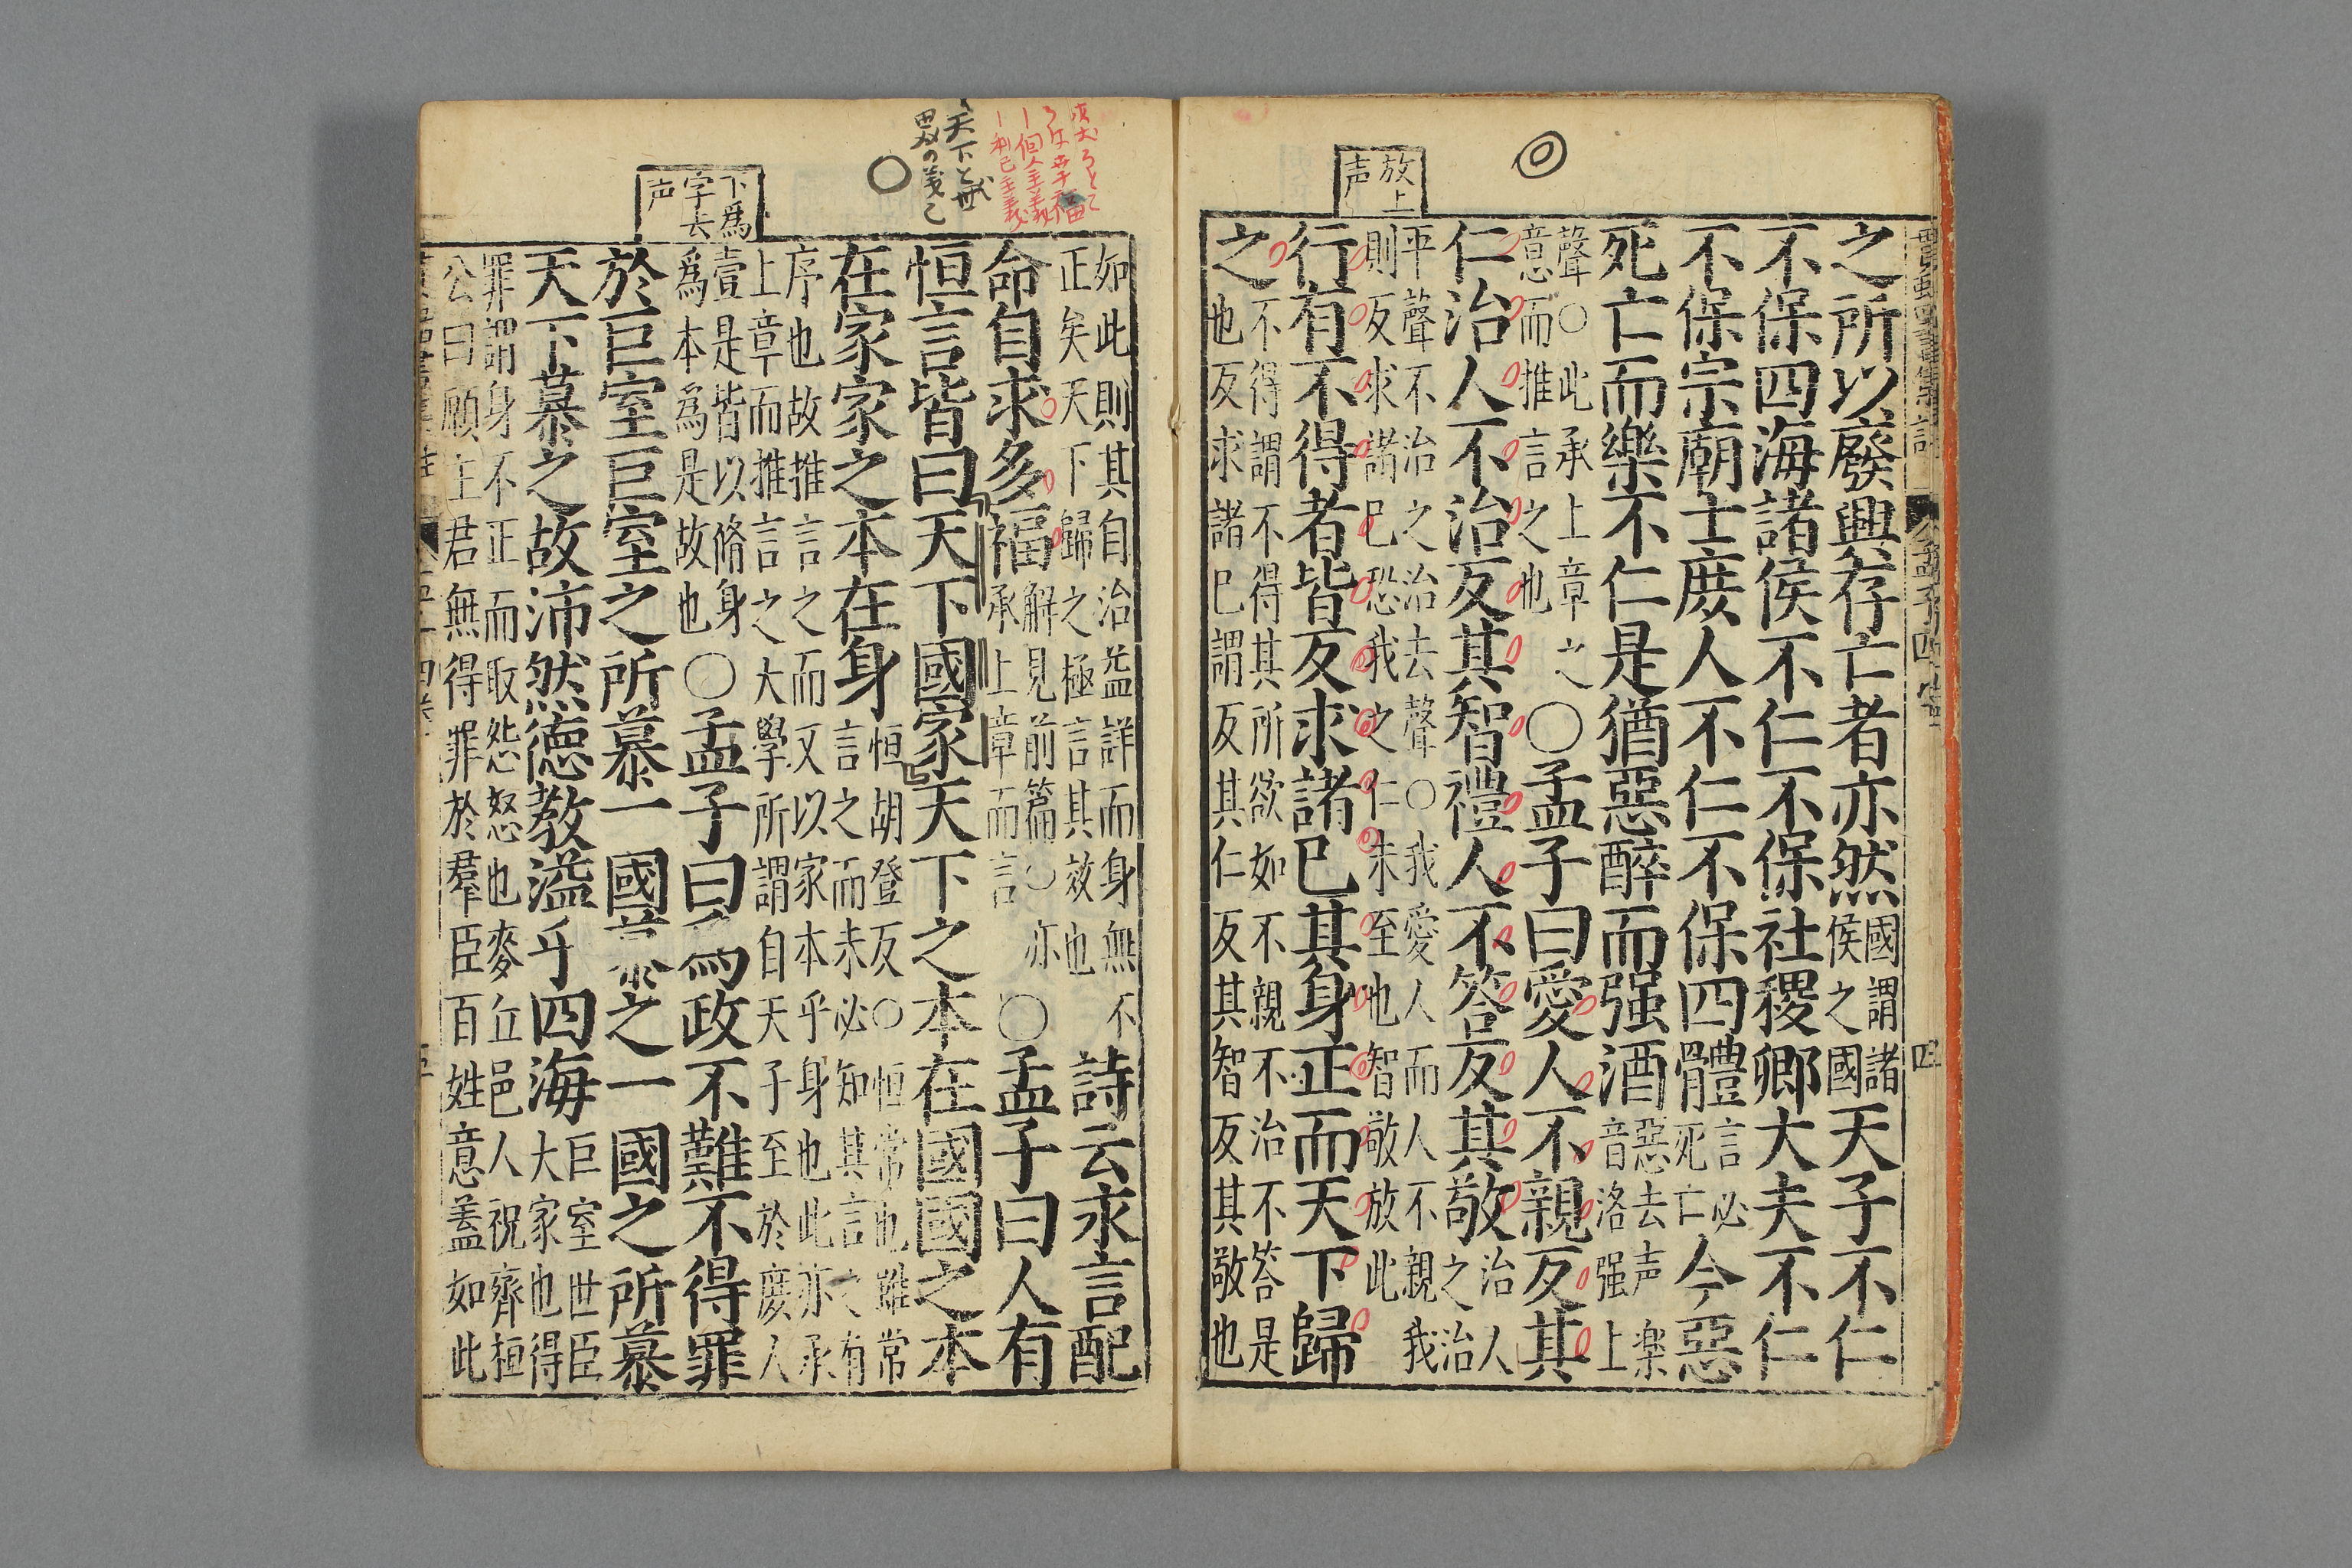 放上
声
之所以廢興存亡者亦然國謂諸侯之國天子不仁
不保四海諸侯不仁不保社稷卿大夫不仁
不保宗廟士庶人不仁不保四體言必死亡今惡
死亡而樂不仁是猶惡醉而强酒惡去声楽音洛强上
聲○此承上章之意而推言之也○孟子曰愛人不親反其
仁治人不治反其智禮人不答反其敬治人之治
平聲不治之治去聲○我愛人而人不親我則反求諸己恐我之仁未至也智敬放此
行有不得者皆反求諸己其身正而天下歸
之不得謂不得其所欲如不親不治不答是也反求諸己謂反其仁反其智反其敬也
四
下爲
字去
声
利己主義
天下と
如此則其自治益詳而身無不正矣天下歸之極言其效也詩云永言配
命自求多福解見前篇○亦承上章而言○孟子曰人有
恒言皆曰天下國家天下之本在國國之本
在家家之本在身恒胡登反○恒常也雖常言之而未必知其言之有
序也故推言之而又以家本乎身也此亦承上章而推言之大學所謂自天子至於庶人
壹是皆以脩身爲本爲是故也○孟子曰爲政不難不得罪
於巨室巨室之所慕一國慕之一國之所慕
天下慕之故沛然德教溢乎四海巨室世臣大家也得
罪謂身不正而取怨怒也麥丘邑人祝齊桓公曰願主君無得罪於羣臣百姓意蓋如此